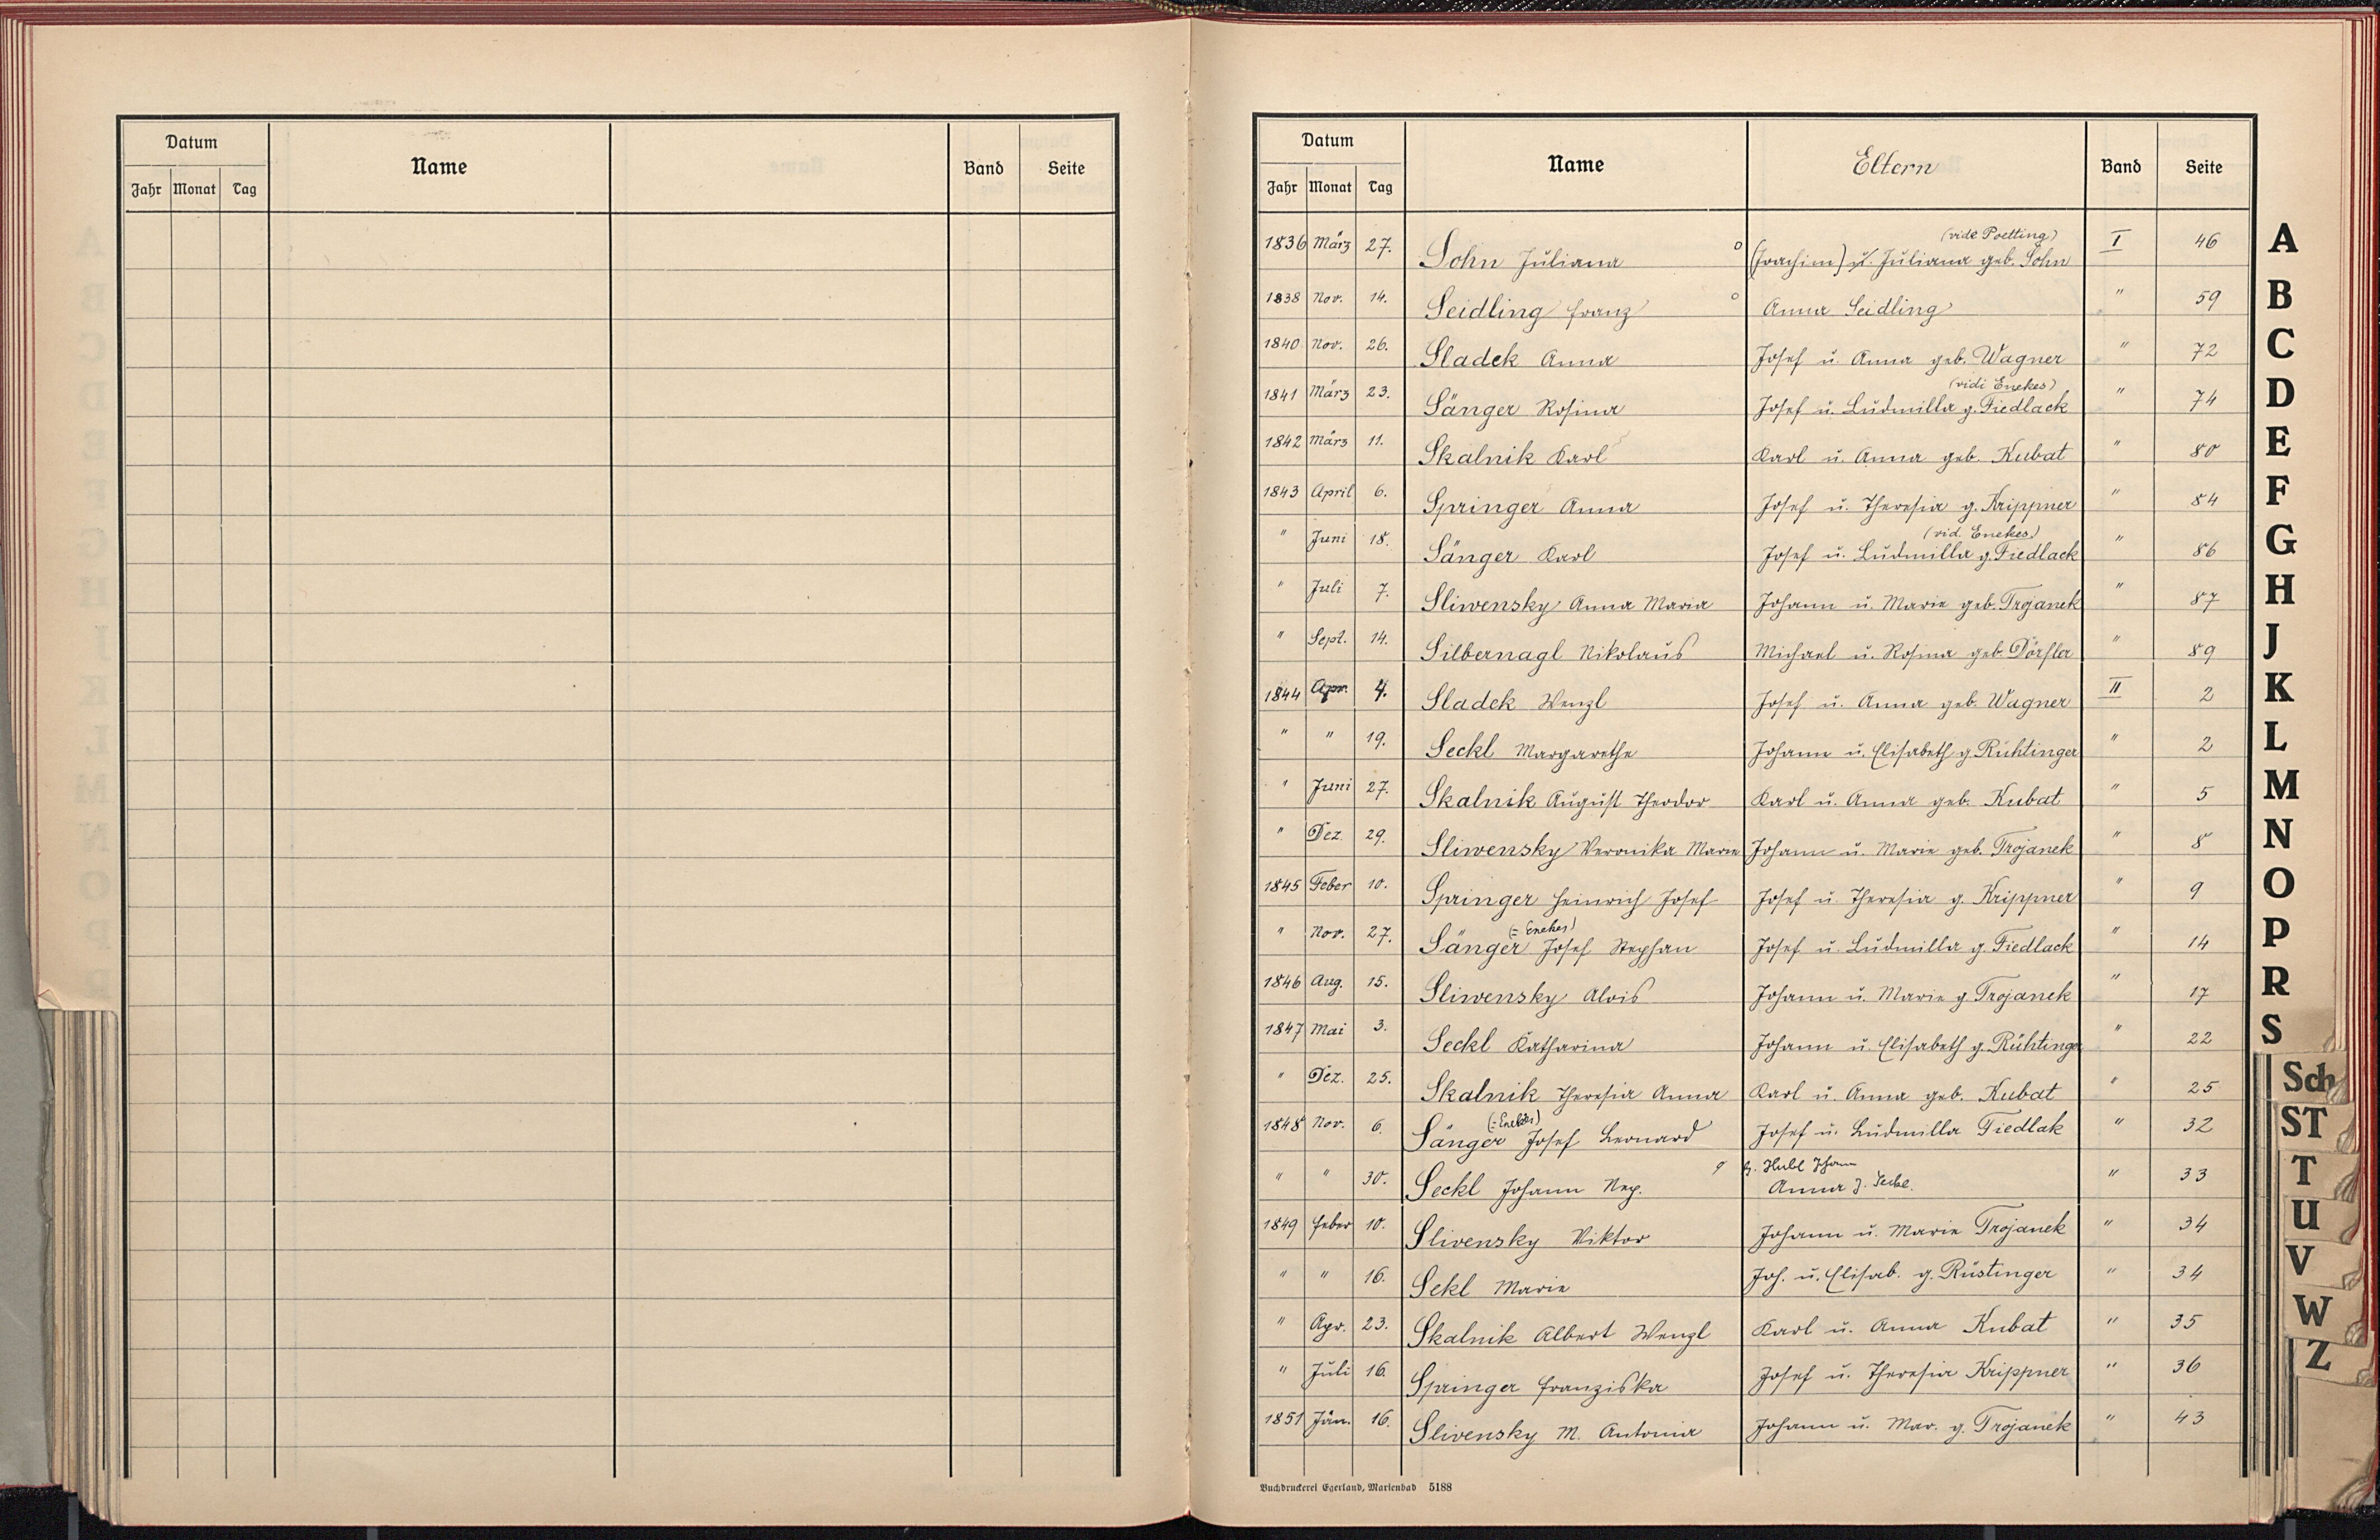 Datum Name Band Seite
Jahr Monat Tag
Datum Name Eltern Band Seite
Jahr Monat Tag
(vide Poetting)
1836 März 27. Sohn Juliana o (Joachim) u. Juliana geb. Sohn I 46
1838 Nov. 14. Seidling Franz o Anna Seidling " 59
1840 Nov. 26. Sladek Anna Josef u. Anna geb. Wagner " 72
(vidi Enekes)
1841 März 23. Sänger Rosina Josef u. Ludmilla g. Fiedlack " 74
1842 März 11. Skalnik Karl Karl u. Anna geb. Kubat " 80
1843 April 6. Springer Anna Josef u. Theresia g. Krippner " 84
(vid. Enekes)
" Juni 18. Sänger Karl Josef u. Ludmilla g. Fiedlack " 86
" Juli 7. Sliwensky Anna Maria Johann u. Marie geb. Trojanek " 87
" Sept. 14. Silbernagl Nikolaus Michael u. Rosina geb. Dörfler " 89
1844 Apr. 4. Sladek Wenzl Josef u. Anna geb. Wagner II 2
" " 19. Seckl Margarethe Johann u. Elisabeth g. Rühtinger " 2
" Juni 27. Skalnik August Theodor Karl u. Anna geb. Kubat " 5
" Dez. 29. Sliwensky Veronika Marie Johann u. Marie geb. Trojanek " 8
1845 Feber 10. Springer Heinrich Josef Josef u. Theresia g. Krippner " 9
(= Enekes)
" Nov. 27. Sänger Josef Stephan Josef u. Ludmilla g. Fiedlack " 14
1846 Aug. 15. Sliwensky Alois Johann u. Marie g. Trojanek " 17
1847 Mai 3. Seckl Katharina Johann u. Elisabeth g. Rühtinger " 22
" Dez. 25. Skalnik Theresia Anna Karl u. Anna geb. Kubat " 25
(= Enekes)
1848 Nov. 6. Sänger Josef Leonard Josef u. Ludmilla Fiedlak " 32
Hubl Johann
" " 30. Seckl Johann Nep. Anna g. Seckl. " 33
1849 Feber 10. Slivensky Viktor Johann u. Marie Trojanek " 34
" " 16. Sekl Marie Joh. u. Elisab. g. Rüstinger " 34
" Apr. 23. Skalnik Albert Wenzl Karl u. Anna Kubat " 35
" Juli 16. Springer Franziska Josef u. Theresia Krippner " 36
1851 Jän. 16. Slivensky M. Antonia Johann u. Mar. g. Trojanek " 43
Buchdruckerei Egerland, Marienbad 5188
A
B
C
D
E
F
G
H
J
K
L
M
N
O
P
R
S
Sch
ST
T
U
V
W
Z